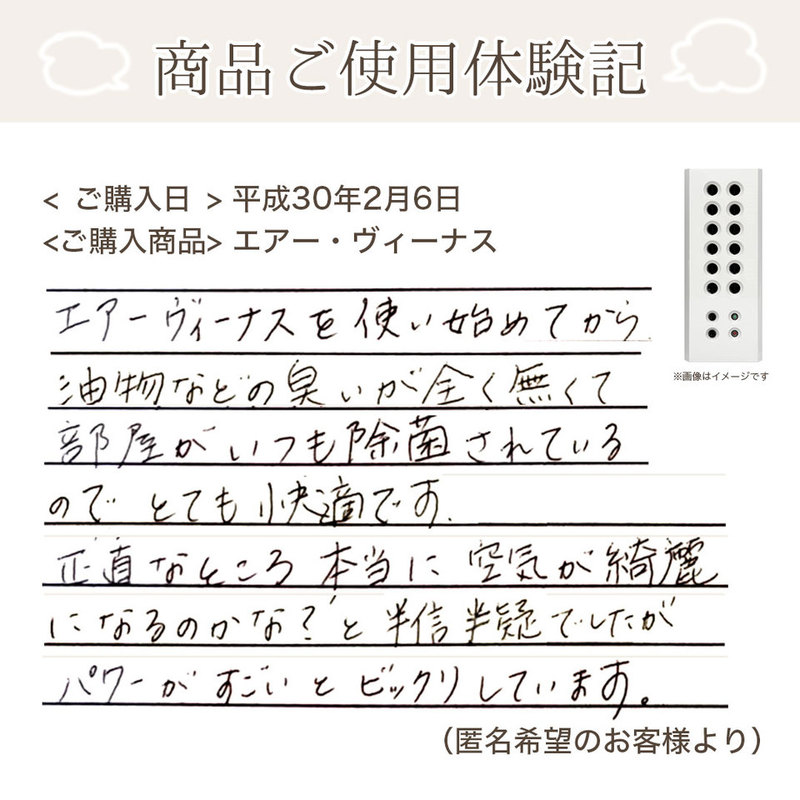 商品ご使用体験記
< ご購入日 > 平成30年2月6日
<ご購入商品> エアー・ヴィーナス
※画像はイメージです
エアーヴィーナスを使い始めてから
油物などの臭いが全く無くて
部屋がいつも除菌されている
のでとても快適です.
正直なところ本当に空気が綺麗
になるのかな?と半信半疑でしたが
パワーがすごいとビックリしています。
（匿名希望のお客様より）